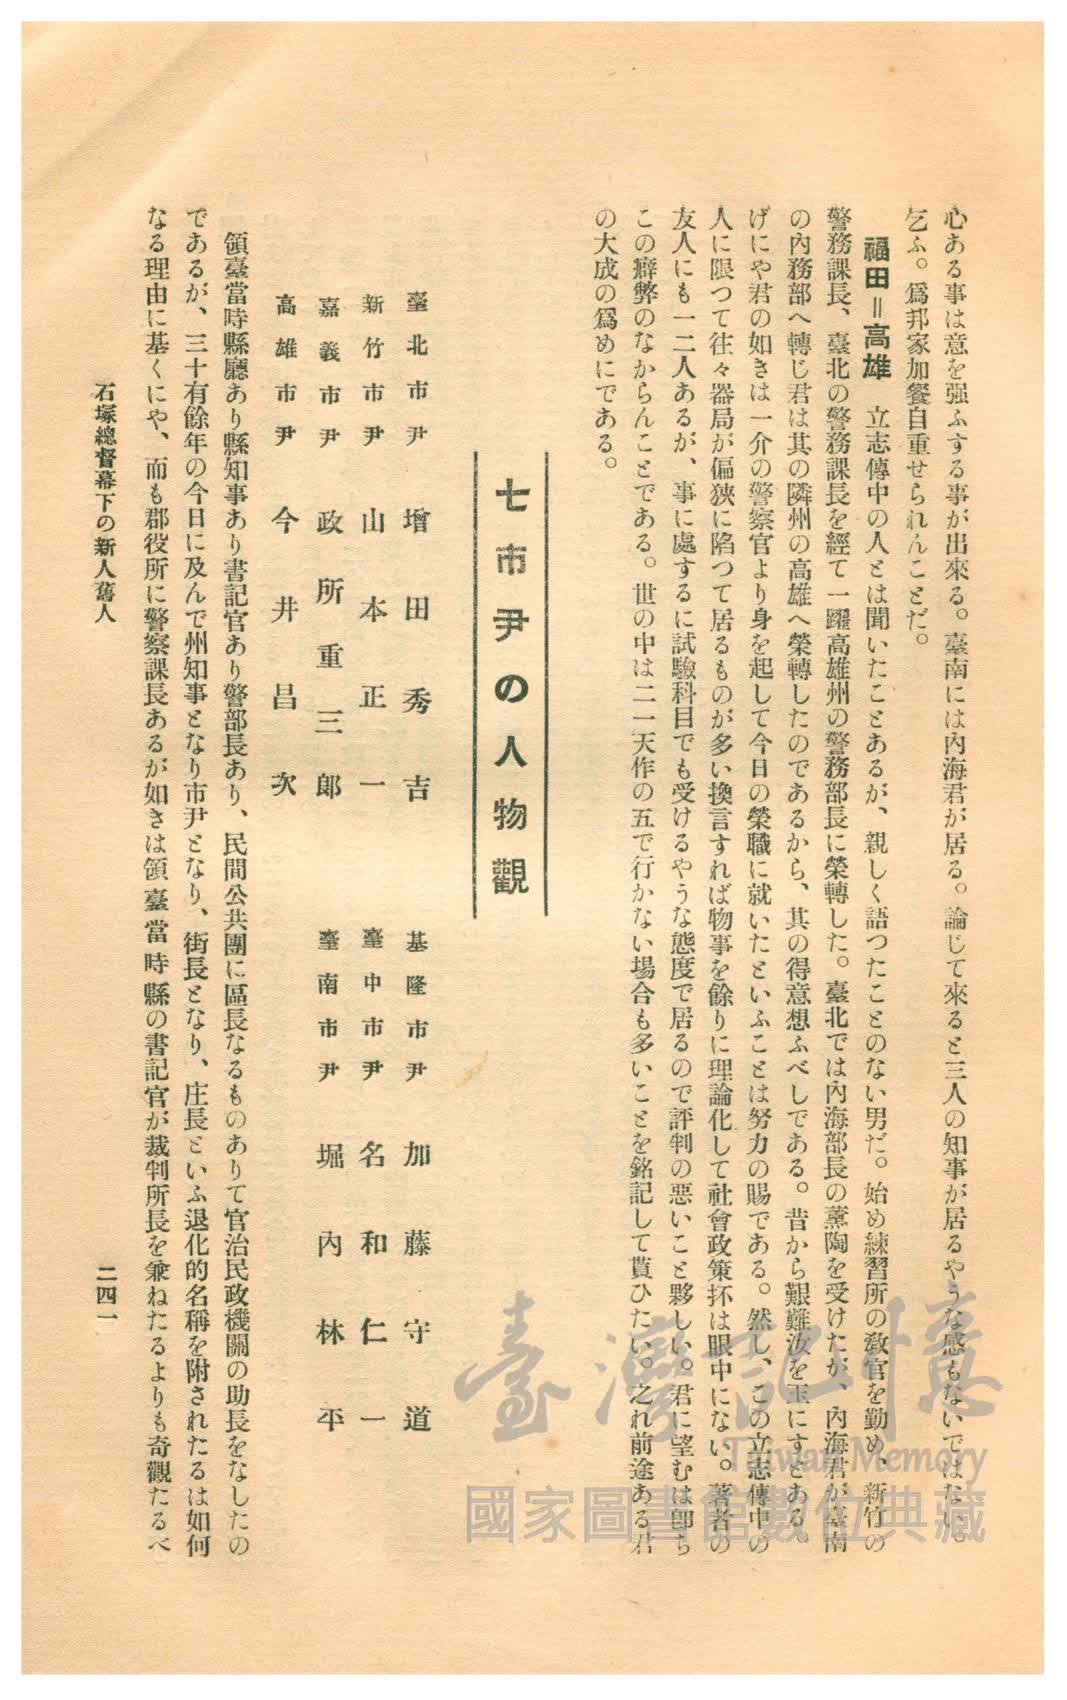 心ある事は意を强ふする事が出來る。臺南には內海君が居る。論じて來ると三人の知事が居るやうな感もないではない。
乞ふ。爲邦家加餐自重せられんことだ。
福田=高雄　立志傳中の人とは聞いたことあるが、親しく語つたことのない男だ。始め練習所の敎官を勤め、新竹の
警務課長、臺北の警務課長を經て一躍高雄州の警務部長に榮轉した。臺北では內海部長の薰陶を受けたが、內海君が臺南
の內務部へ轉じ君は其の隣州の高雄へ榮轉したのであるから、其の得意想ふべしである。昔から艱難汝を玉にすとある。
げにや君の如きは一介の警察官より身を起して今日の榮職に就いたといふことは努力の賜である。然し、この立志傳中の
人に限つて往々器局が偏狹に陷つて居るものが多い換言すれば物事を餘りに理論化して社會政策抔は眼中にない。著者の
友人にも一二人あるが、事に處するに試驗科目でも受けるやうな態度で居るので評判の惡いこと夥しい。君に望むは卽ち
この癖弊のなからんことである。世の中は二一天作の五で行かない場合も多いことを銘記して貰ひたい。之れ前途ある君
の大成の爲めにである。
七市尹の人物觀
臺北市尹　增田秀吉　基隆市尹　加藤守道
新竹市尹　山本正一　臺中市尹　名和仁一
嘉義市尹　政所重三郞　臺南市尹　堀內林平
高雄市尹　今井昌次
領臺當時縣廳あり縣知事あり書記官あり警部長あり、民間公共團に區長なるものありて官治民政機關の助長をなしたの
であるが、三十有餘年の今日に及んで州知事となり市尹となり、街長となり、庄長といふ退化的名稱を附されたるは如何
なる理由に基くにや、而も郡役所に警察課長あるが如きは領臺當時縣の書記官が裁判所長を兼ねたるよりも奇觀たるべ
石塚總督幕下の新人舊人　二四一
臺灣記憶
Taiwan Memory
國家圖書館數位典藏